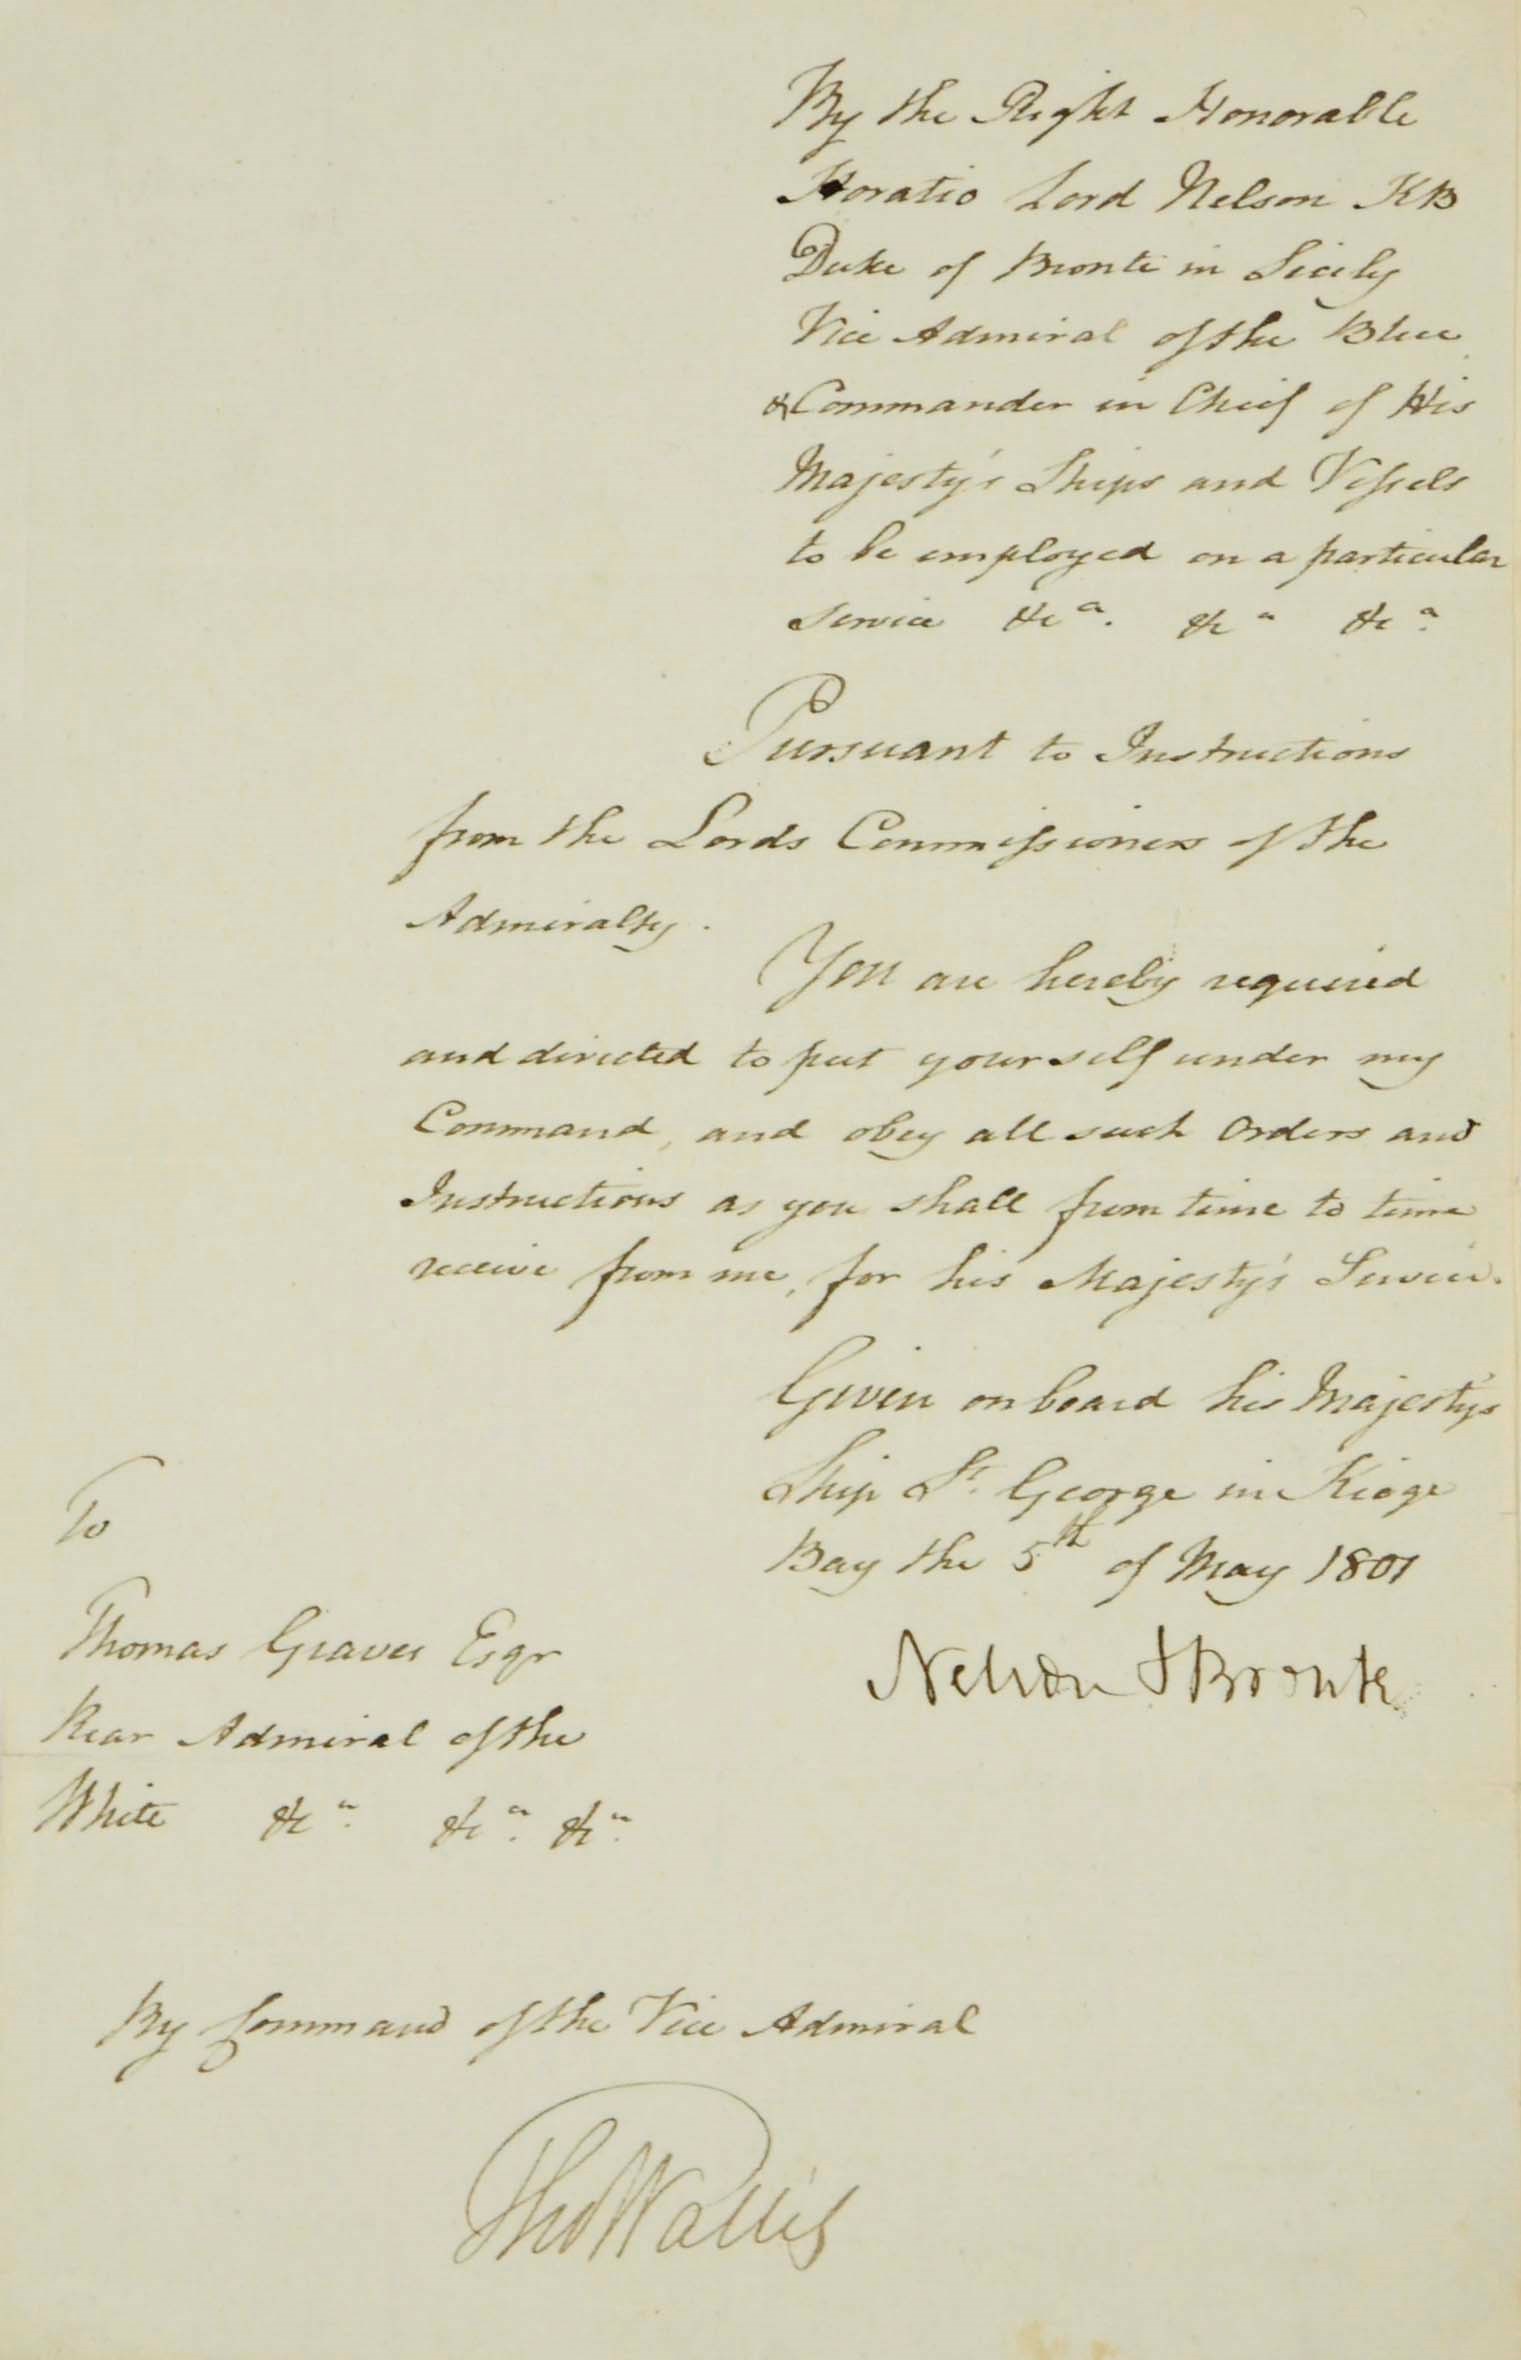 By the Right Honorable
Horatio Lord Nelson KB
Duke of Bronte in Sicily
Vice Admiral of the Blue
& Commander in Chief of His
Majesty's Ships and Vessels
to be employed on a particular
Service &c a. &c a &c a.
Pursuant to Instructions
from the Lords Commissioners of the
Admiralty.
You are hereby required
and directed to put yourself under my
Command, and obey all such Orders and
Instructions as you shall from time to time
receive from me, for his Majesty's Service.
Given on board his Majesty's
Ship St. George in Kioge
Bay the 5th of May 1801
Nelson & Bronte
To
Thomas Graves Esqr
Rear Admiral of the
White &c a. &c a. &c a.
By Command of the Vice Admiral
Tho Wallis